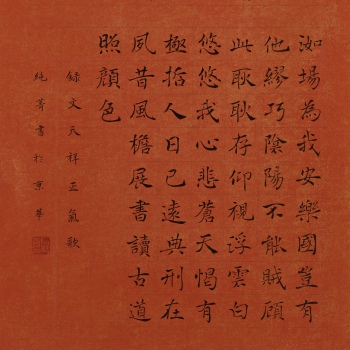 洳場為我安樂國豈有
他繆巧陰陽不能賊顧
此耿耿存仰視浮雲白
悠悠我心悲蒼天愒有
極哲人日已遠典刑在
夙昔風檐展書讀古道
照顏色
錄文天祥正氣歌
純菁書於京華